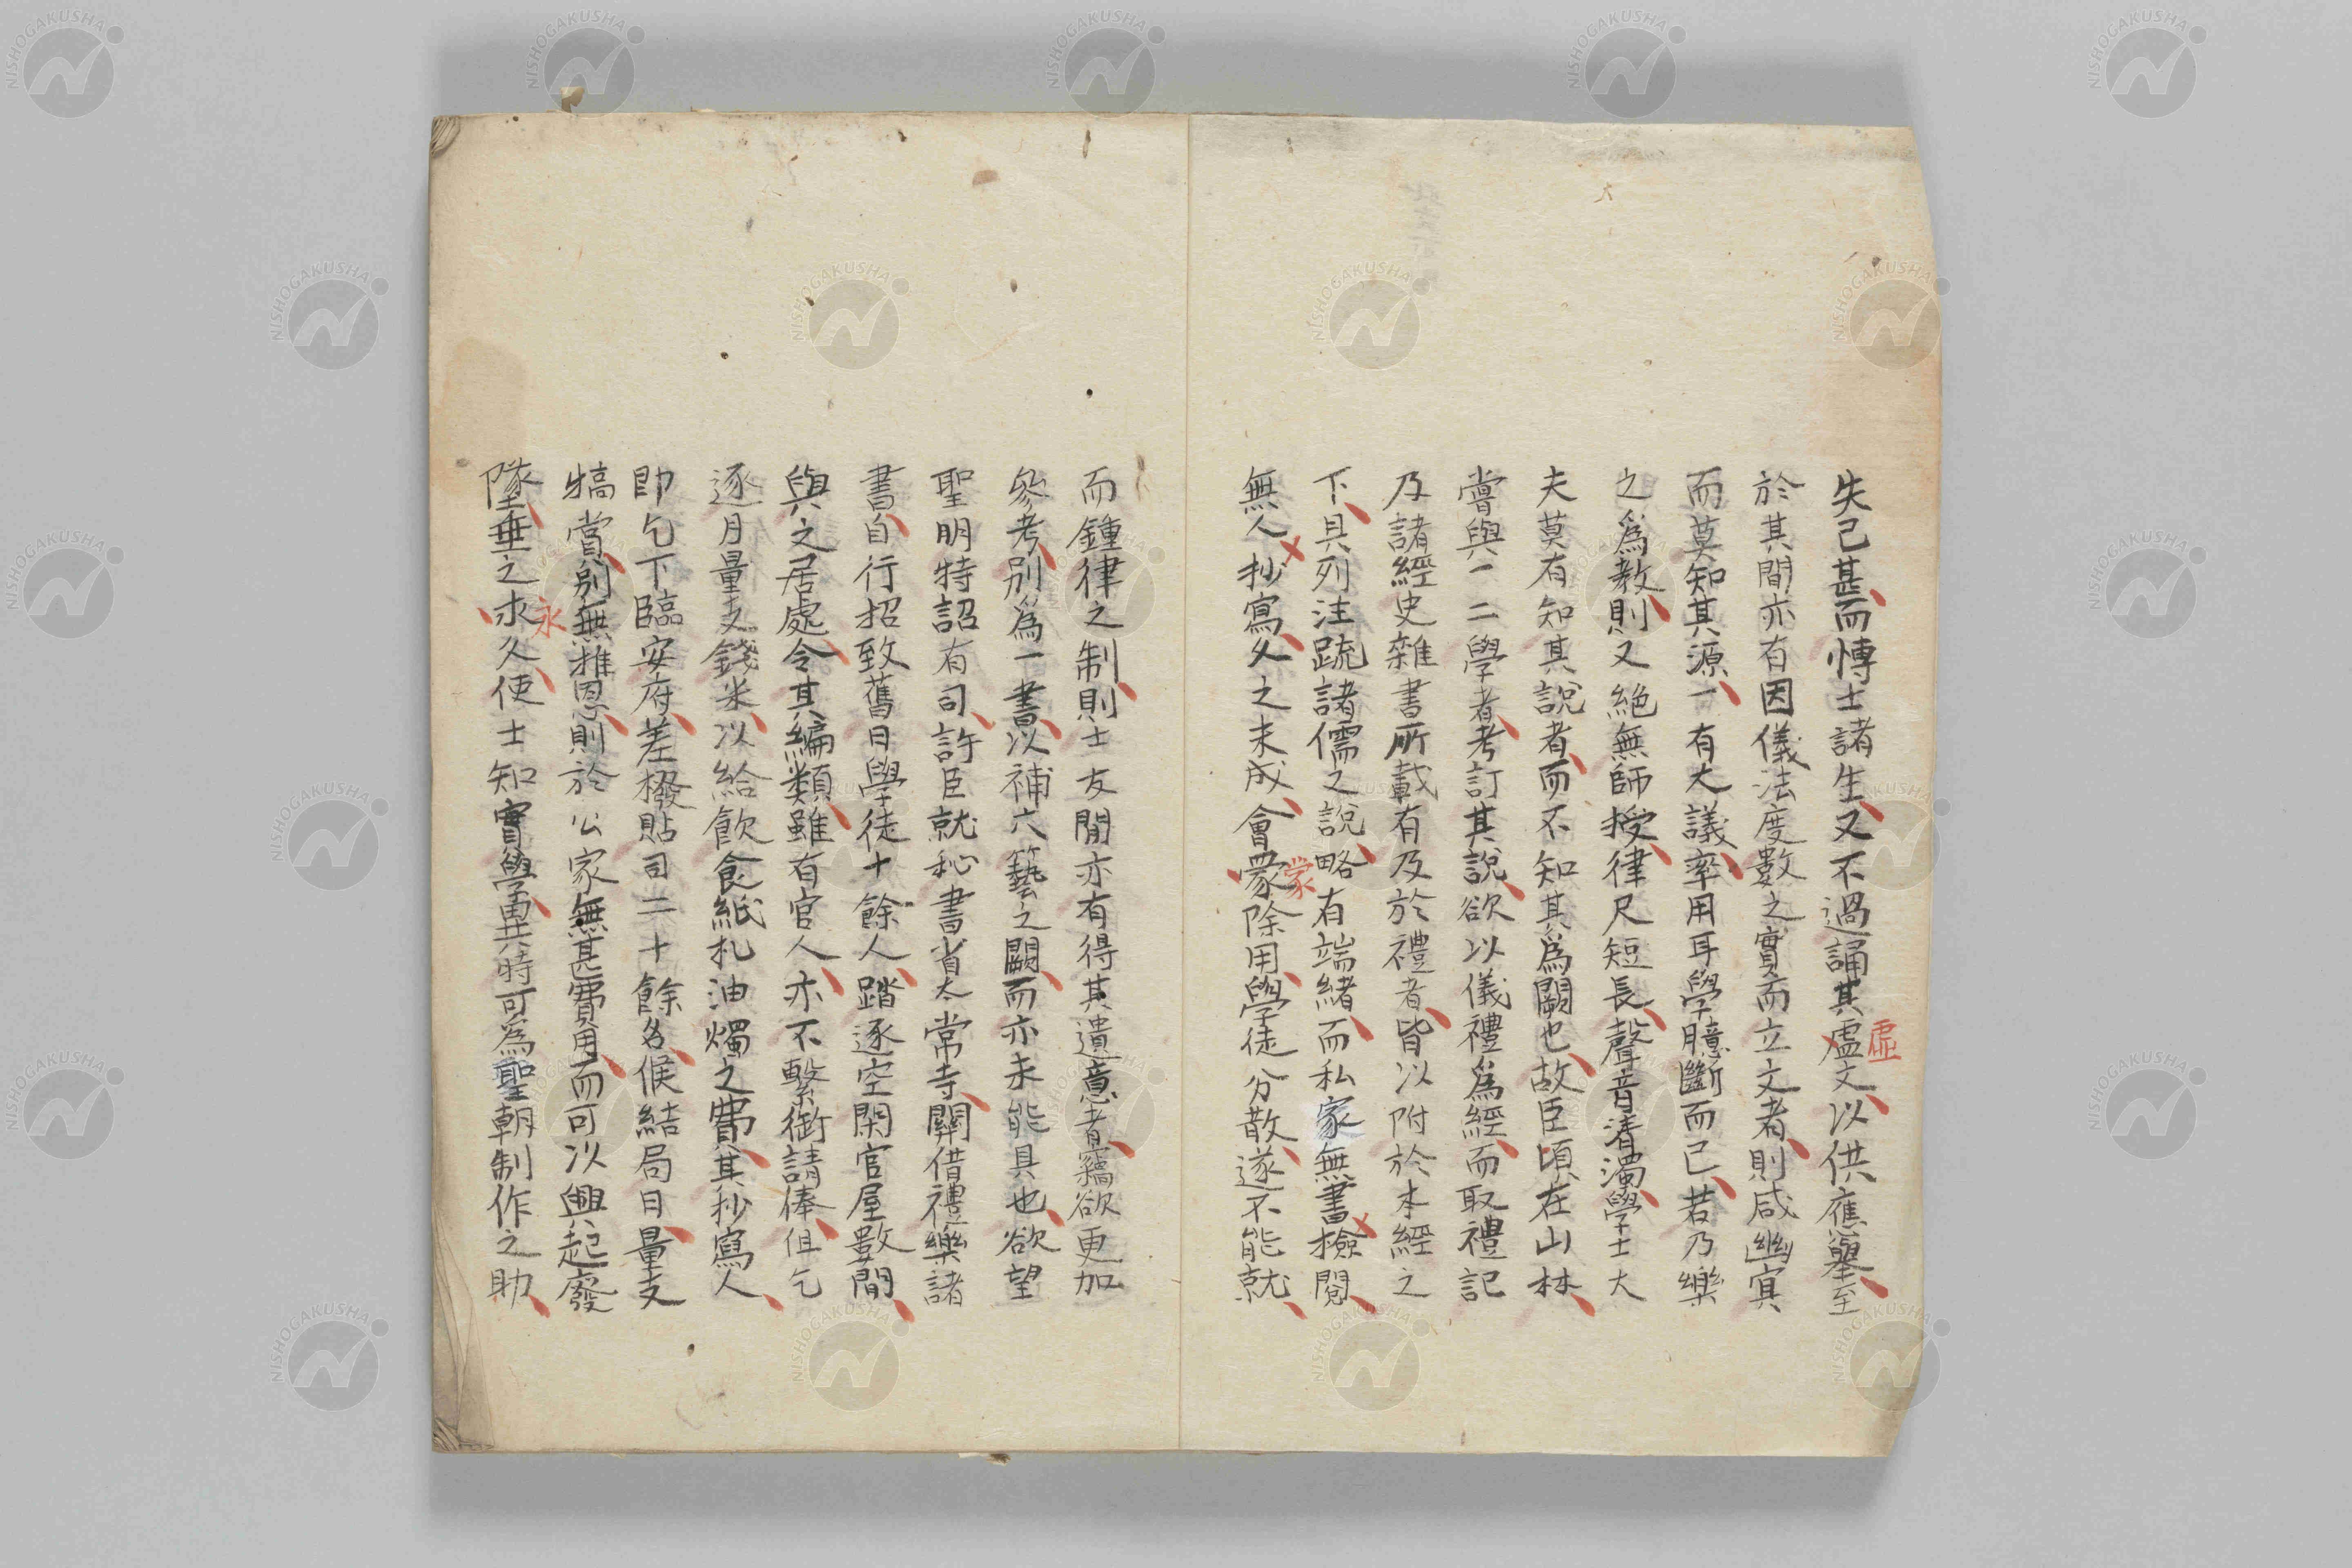 失已甚而博士諸生又不過誦其虛文以供應舉至
於其間亦有因儀法度數之實而立文者則咸幽冥
而莫知其源一有大議率用耳學臆斷而已若乃樂
之爲教則又絕無師授律尺短長聲音清濁學士大
夫莫有知其說者而不知其爲闕也故臣頃在山林
嘗與一二學者考訂其說欲以儀禮爲經而取禮記
及諸經史雜書所載有及於禮者皆以附於本經之
下具列注疏諸儒之說略有端緒而私家無書撿閱
無人抄寫久之未成會蒙除用學徒分散遂不能就
而鍾律之制則士友間亦有得其遺意者竊欲更加
參考別爲一書以補六藝之闕而亦未能具也欲望
聖明特詔有司許臣就秘書省太常寺關借禮樂諸
書自行招致舊日學徒十餘人踏逐空閑官屋數間
與之居處令其編類雖有官人亦不繫銜請俸但乞
逐月量支錢米以給飲食紙札油燭之費其抄寫人
即乞下臨安府差撥貼司二十餘名候結局日量支
犒賞別無推恩則於公家無甚費用而可以興起廢
墜垂之永久使士知實學異時可爲聖朝制作之助
虛
蒙
永
NISHOGAKUSHA